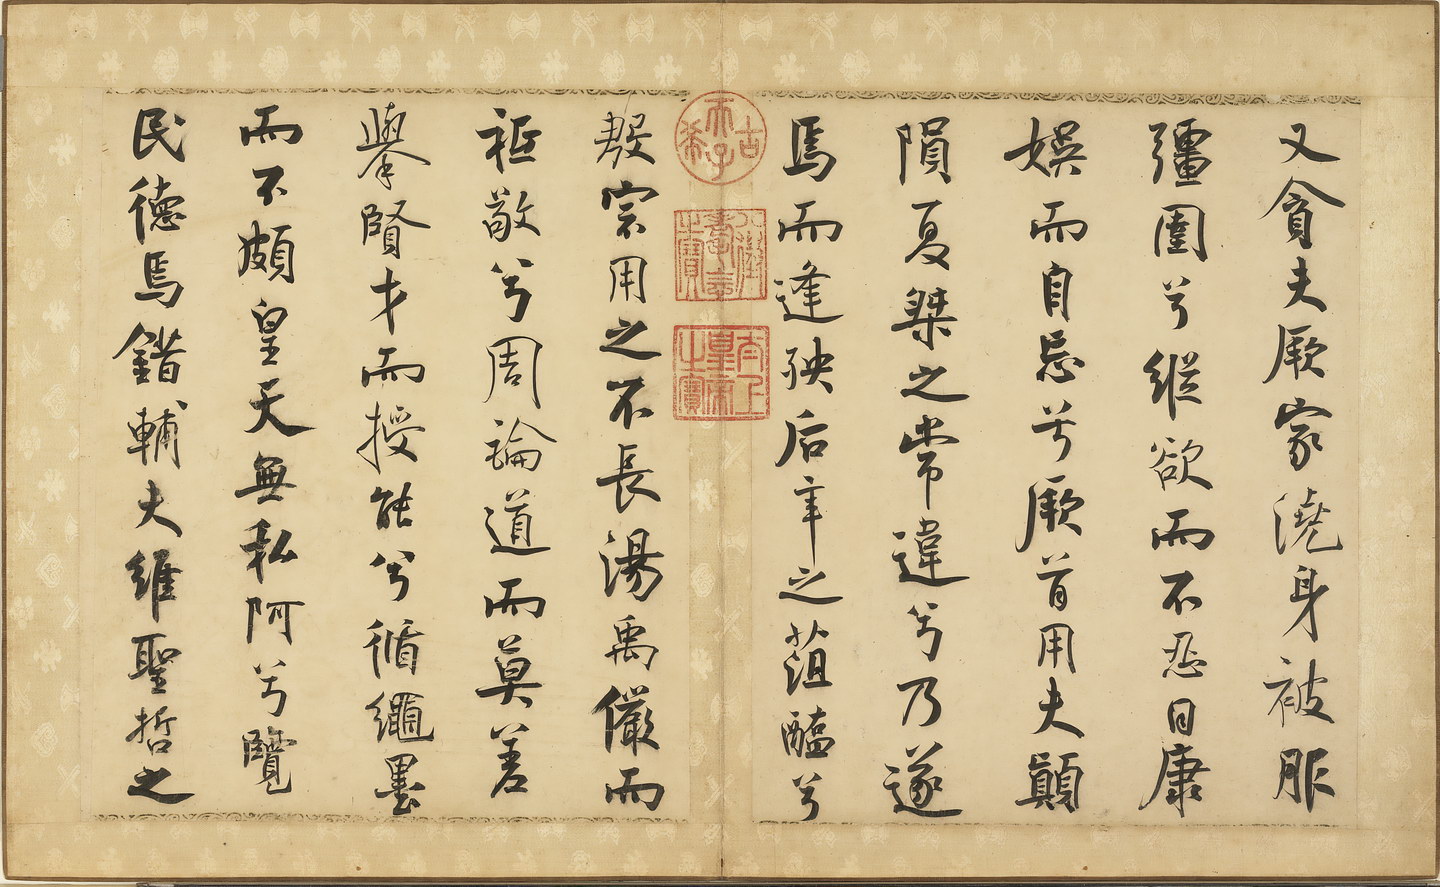 又貪夫厥家澆身被服
彊圉兮縱欲而不忍日康
娛而自忘兮厥首用夫顛
隕夏桀之常違兮乃遂
焉而逢殃后辛之菹醢兮
古希天子
八徵耄念之寶
太上皇帝之寶
殷宗用之不長湯禹儼而
祗敬兮周論道而莫差
舉賢才而授能兮循繩墨
而不頗皇天無私阿兮覽
民德焉錯輔夫維聖哲之